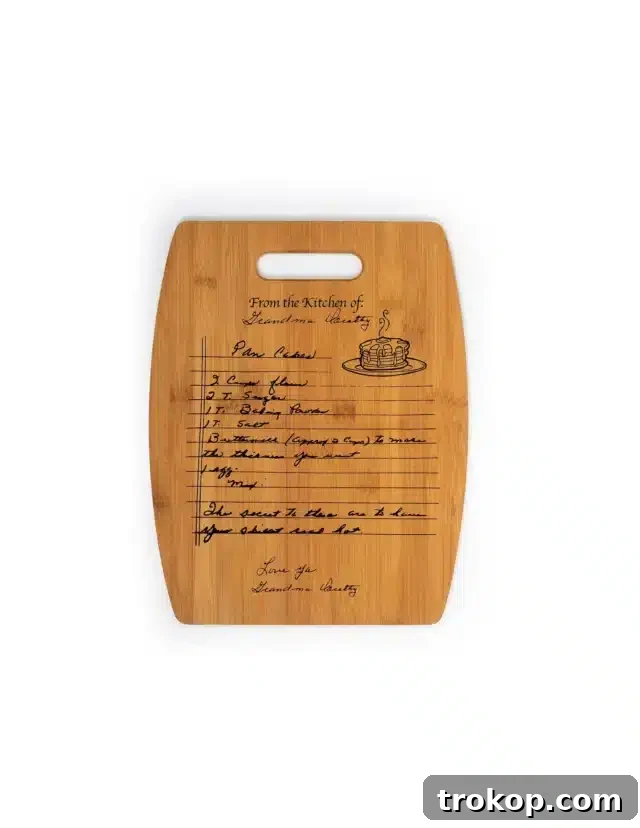 From the Kitchen of:
Grandma Dorothy
Pan Cakes
2 Cups flour
2 T. Sugar
1 T. Baking Powder
1 T. Salt
Buttermilk (approx 2 Cups) to make
the thickness you want
1 egg.
Mix.
The secret to these are to have
your skillet real hot
Love ya
Grandma Dorothy
trokop.com